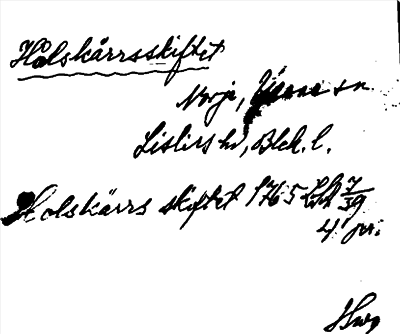 Hålskärrsskiftet
Norje, sn
Listers hd, Blek. l.
Holskärrs skiftet 1765 7/39
4 jor.